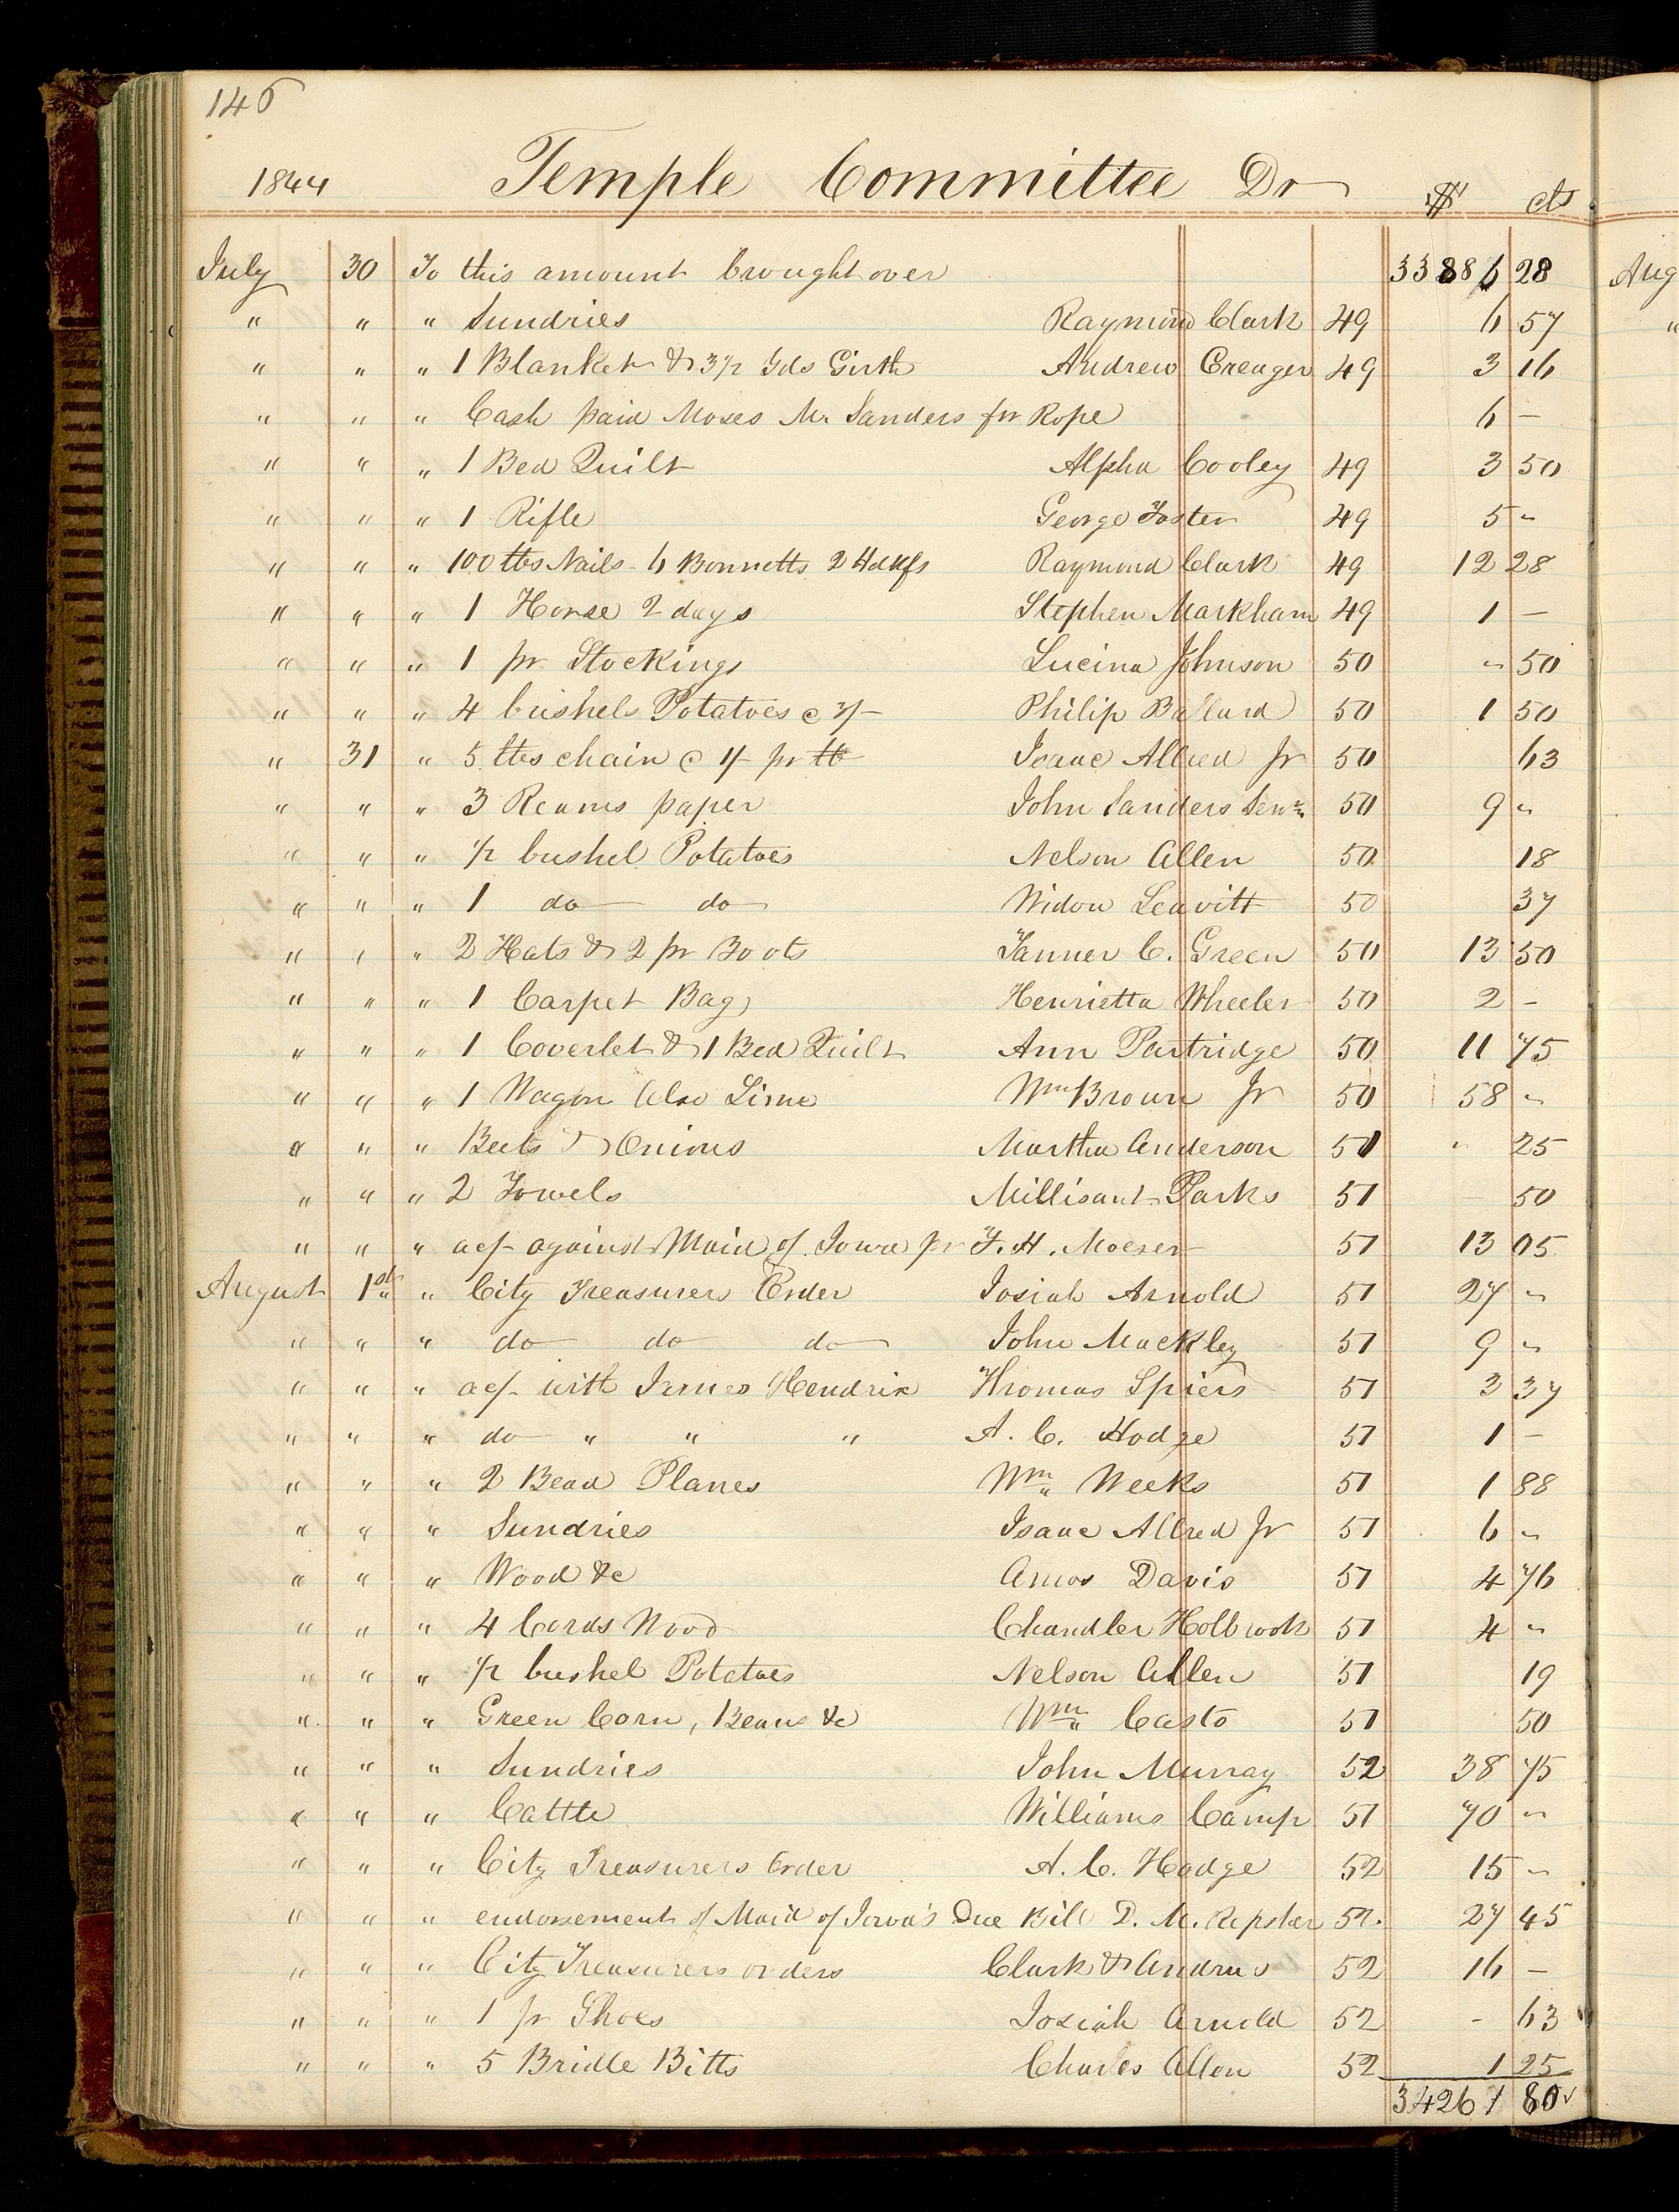 146
1844 Temple Committee Dr $ cts
July 30 To this amount brought over 33886 28
" " " Sundries Raymond Clark 49 6 57
" " " 1 Blanket & 3 1/2 Yds Girth Andrew Creager 49 3 16
" " " Cash paid Moses M. Sanders for Rope 6 –
" " " 1 Bed Quilt Alpha Cooley 49 3 50
" " " 1 Rifle George Foster 49 5 "
" " " 100 lbs Nails - 6 Bonnetts 2 Hdkfs Raymond Clark 49 12 28
" " " 1 Horse 2 days Stephen Markham 49 1 –
" " " 1 pr Stockings Lucina Johnson 50 " 50
" " " 4 bushels Potatoes @ 3/- Philip Ballard 50 1 50
" 31 " 5 lbs chain @ 1/- pr lb Isaac Allred Jr 50 63
" " " 3 Reams paper John Sanders Senr 50 9 "
" " " 1/2 bushel Potatoes Nelson Allen 50 18
" " " 1 do do Widow Leavitt 50 37
" " " 2 Hats & 2 pr Boots Tanner C. Green 50 13 50
" " " 1 Carpet Bag Henrietta Wheeler 50 2 –
" " " 1 Coverlet & 1 Bed Quilt Ann Partridge 50 11 75
" " " 1 Wagon Also Lime Wm Brown Jr 50 58 "
" " " Beets & Onions Martha Anderson 51 " 25
" " " 2 Towels Millisant Parks 51 50
" " " acf against Maid of Iowa pr F. H. Moeser 51 13 05
August 1st " City Treasurers Order Josiah Arnold 51 27 "
" " " do do do John Mackley 51 9 "
" " " acf with James Hendrix Thomas Spiers 51 3 37
" " " do " " " A. C. Hodge 51 1 –
" " " 2 Bead Planes Wm Weeks 51 1 88
" " " Sundries Isaac Allred Jr 51 6 "
" " " Wood &c Amos Davis 51 4 76
" " " 4 Cords Wood Chandler Holbrook 51 4 "
" " " 1/2 bushel Potatoes Nelson Allen 51 19
" " " Green Corn, Beans &c Wm Casto 51 50
" " " Sundries John Murray 52 38 75
" " " Cattle Williams Camp 51 70 "
" " " City Treasurers Order A. C. Hodge 52 15 "
" " " endorsement of Maid of Iowa's Due Bill D. M. Repsher 52 27 45
" " " City Treasurers orders Clark & Andrus 52 16 –
" " " 1 pr Shoes Josiah Arnold 52 - 63
" " " 5 Bridle Bitts Charles Allen 52 1 25
34261 80
Aug
"